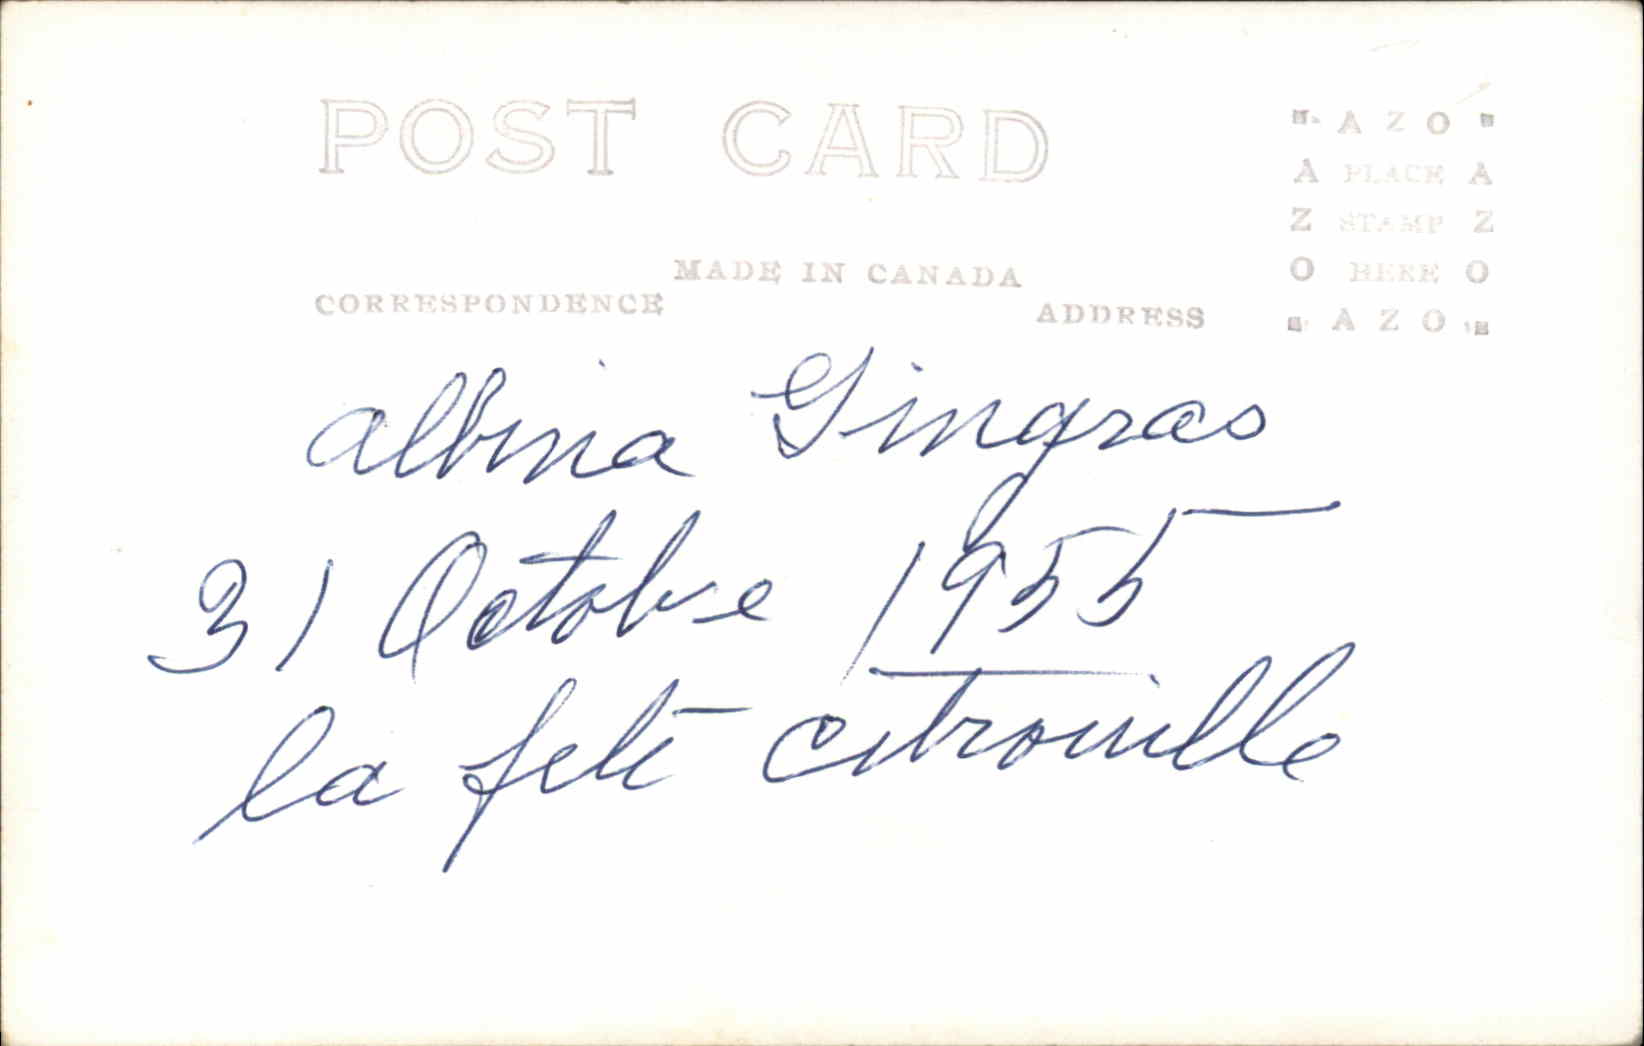 POST CARD
AZO
A PLACE A
Z STAMP Z
O HERE O
AZO
MADE IN CANADA
CORRESPONDENCE
ADDRESS
Albina Gingras
31 Octobre 1955
la fete citrouille